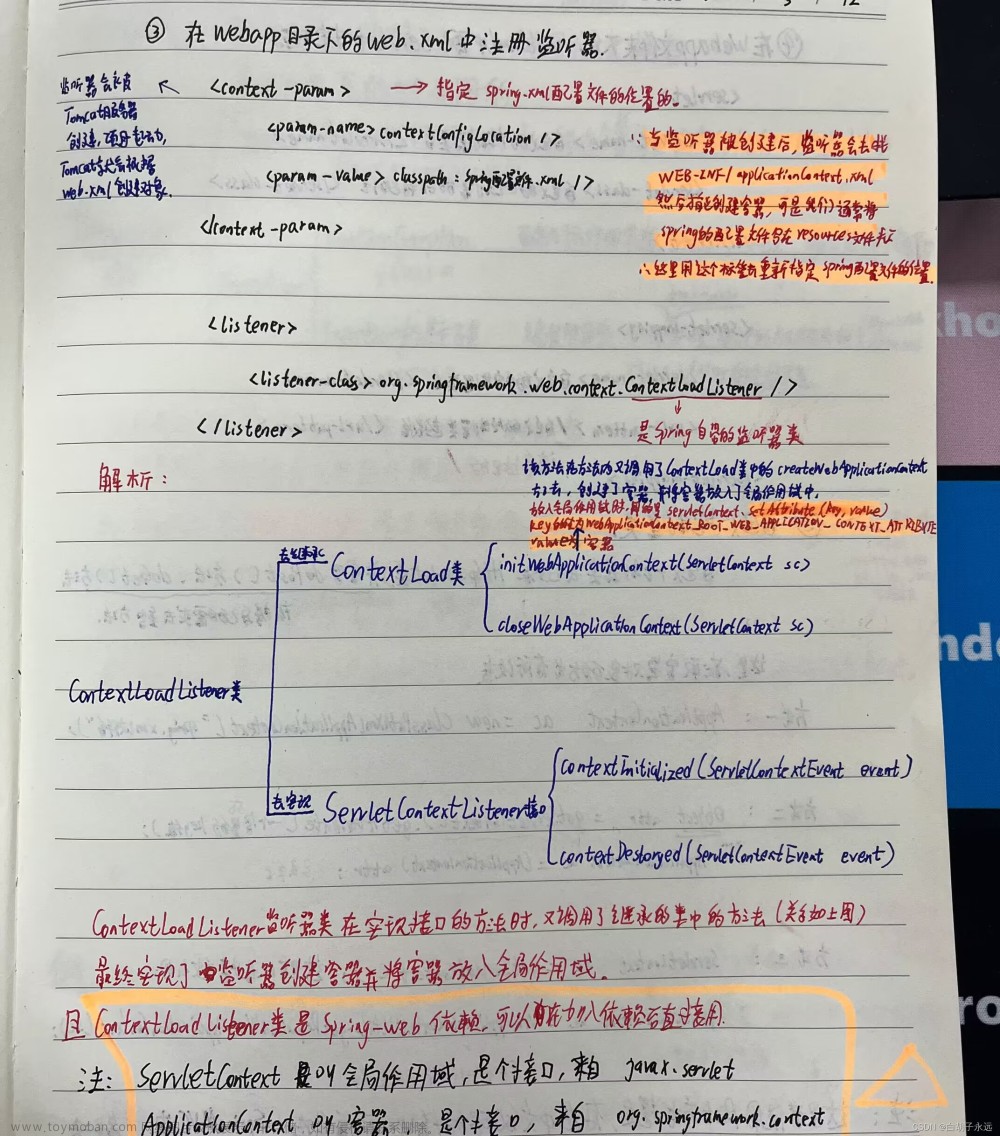 ③ 在webapp目录下的web.xml中注册监听器.
监听器会被
Tomcat服务器
创建,项目启动,
Tomcat就会根据
web.xml创建对象.
<context-param> → 指定 spring.xml配置文件的位置的.
<param-name> contextConfigLocation />
<param-value> classpath:spring配置文件.xml />
</context-param>
∵当监听器被创建后,监听器会去找
WEB-INF/applicationContext.xml
然后创建容器,可是我们通常将
spring的配置文件写在resources文件夹下
∴这里用这个标签去重新指定spring配置文件的位置.
<listener>
<listener-class> org.springframework.web.context.ContextLoadListener />
</listener>
是Spring自带的监听器类
解析:
该方法在方法内又调用了ContextLoad类中的createWebApplicationContext
方法,创建了容器,并将容器放入了全局作用域中,
放入全局作用域时,用的是servletContext.setAttribute(key,value)
key的值为WebApplicationContext_ROOT_WEB_APPLICATION_CONTEXT_ATTRIBYTE
value为容器
去继承 ContextLoad类
initWebApplicationContext(servletContext sc)
closeWebApplicationContext(ServletContext sc)
ContextLoadListener类
去实现 ServletContextListener接口
contextInitialized(ServletContextEvent event)
contextDestorged(ServletContextEvent event)
ContextLoadListener监听器类在实现接口的方法时,又调用了继承的类中的方法(关系如上图)
最终实现了监听器创建容器并将容器放入全局作用域.
且ContextLoadListener类是Spring-web依赖,可以加入依赖后直接用.
注: ServletContext 是叫全局作用域,是个接口,来自 javax.servlet
ApplicationContext 叫容器,是个接口,来自 org.springframework.context
www.toymoban.com
CSDN @白胡子永远